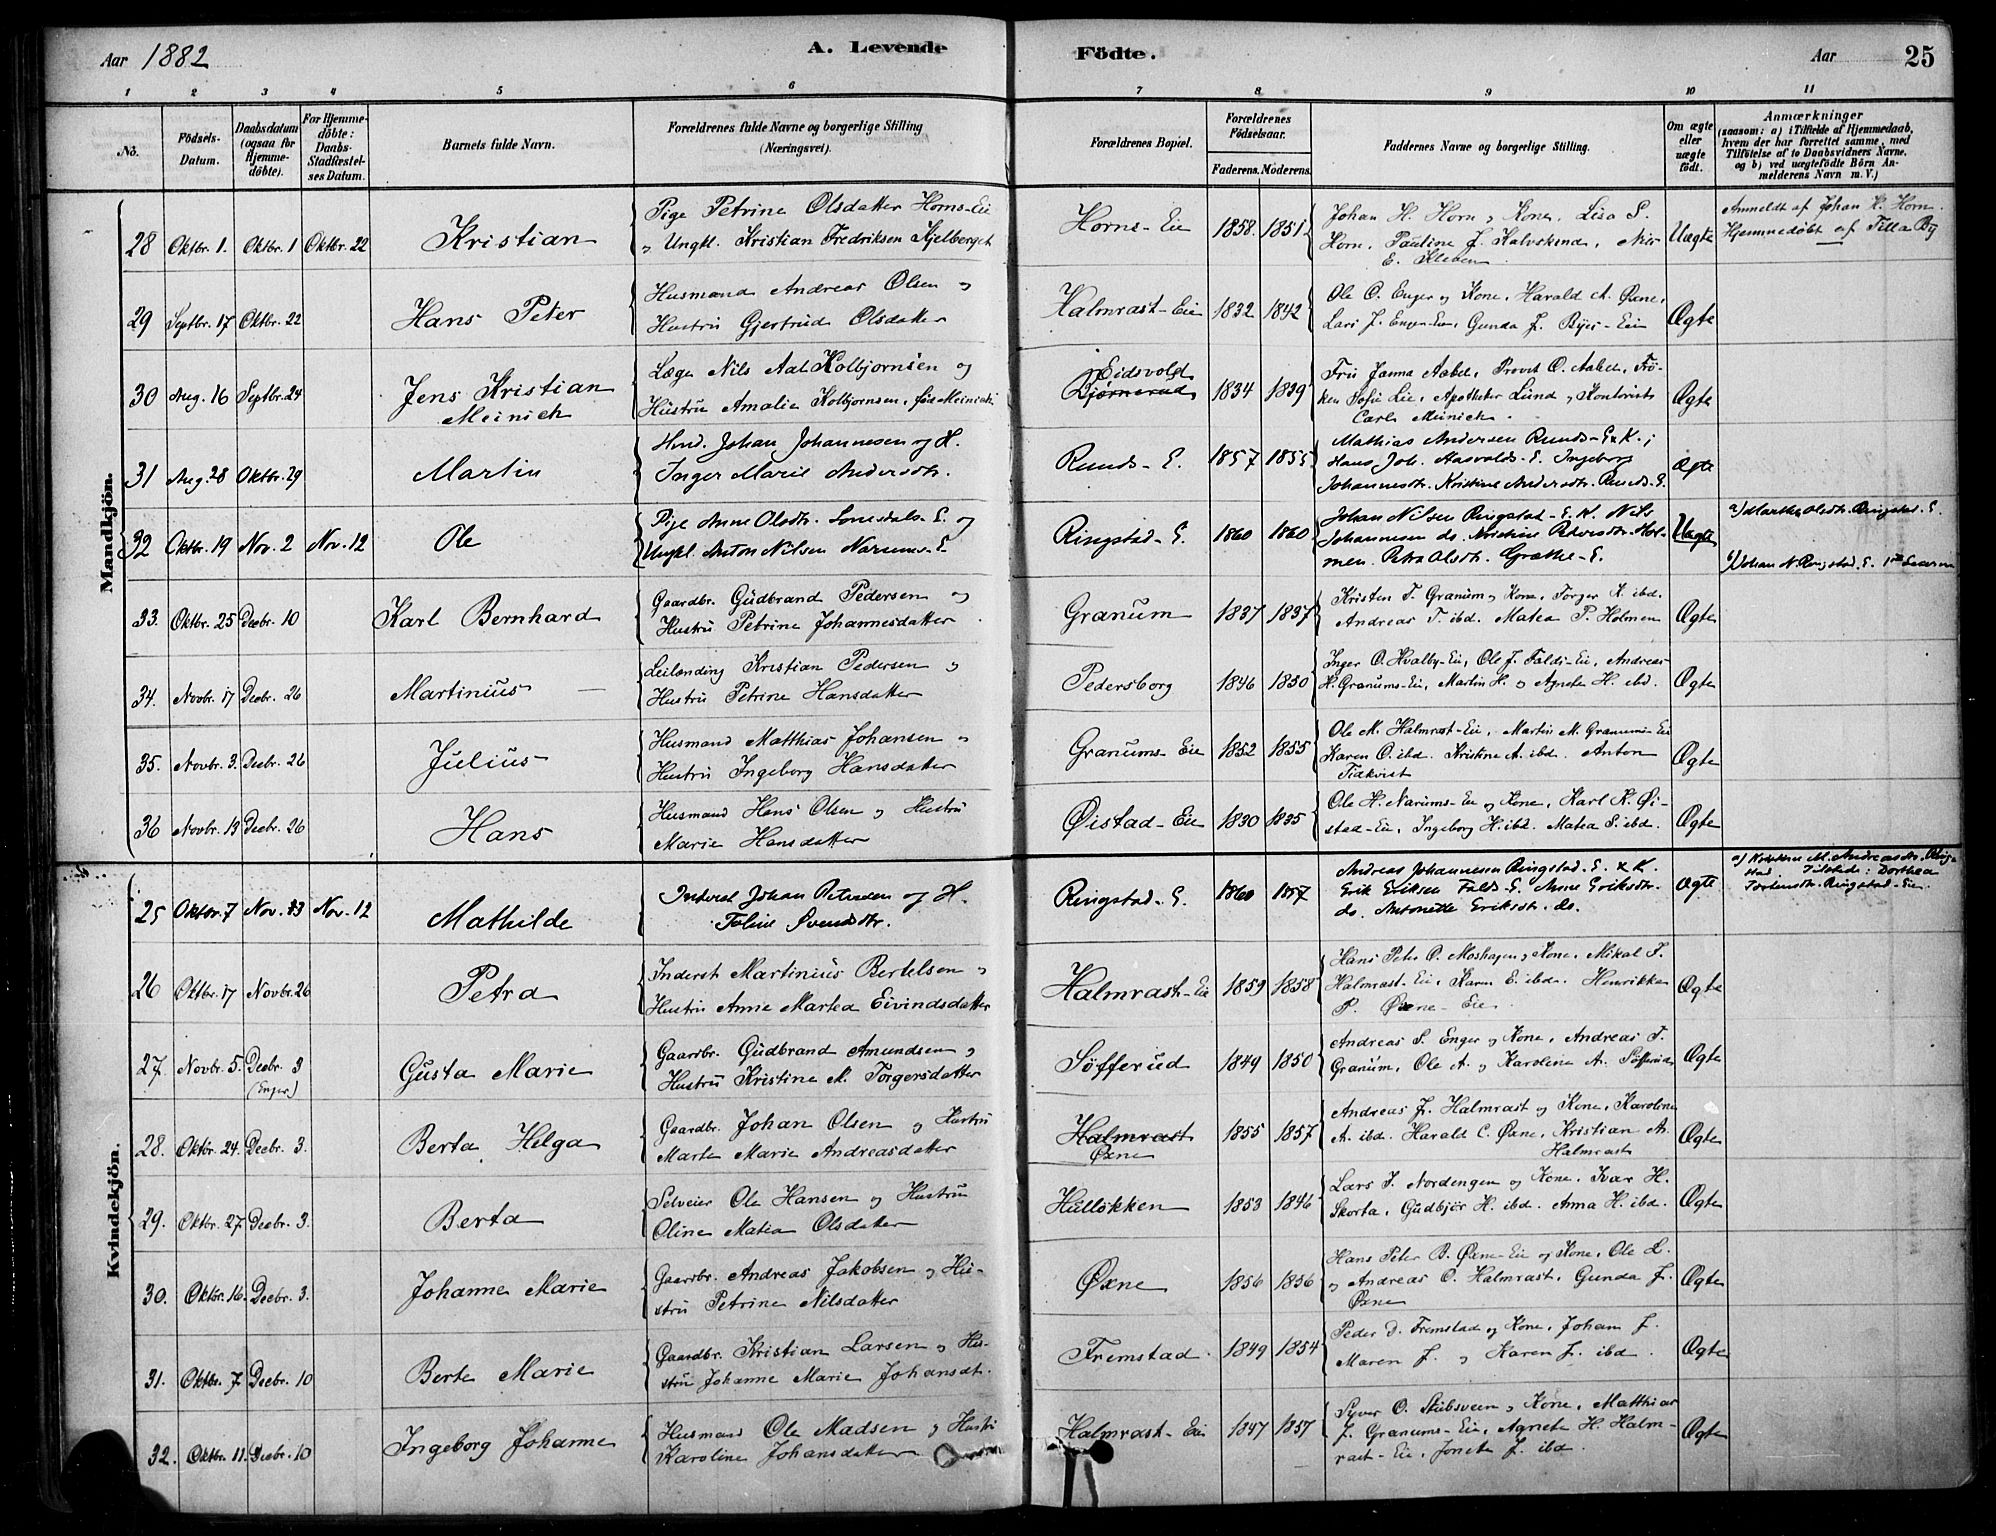 Aar 1882
A. Levende
Födte.
Aar
25
1 2 3 4 5 6 7 8 9 10 11
No.
Födsels-Datum.
Daabsdatum (ogsaa for Hjemme-döbte).
For Hjemme-döbte: Daabs-Stadfæstel-ses Datum.
Barnets fulde Navn.
Forældrenes fulde Navne og borgerlige Stilling (Næringsvei).
Forældrenes Bopæl.
Forældrenes Födselsaar.
Faderens. Moderens.
Faddernes Navne og borgerlige Stilling.
Om ægte eller uægte födt.
Anmærkninger
(saasom: a) i Tilfælde af Hjemmedaab, hvem der har forrettet samme, med Tilföielse af to Daabsvidners Navne, og b) ved uægtefödte Börn An-melderens Navn m. V.)
Mandkjön.
28 Oktbr. 1. Oktbr. 1 Oktbr. 22 Kristian
Pige Petrine Olsdatter Horns-Eie
" Ungkl. Kristian Fredriksen Kjelberget
Horns-Eie 1858. 1851
Johan H. Horn og Kone, Lisa S.
Horn, Pauline J. Kalvskind,
E. Kleven
Uægte
Anmeldt af Johan H. Horn.
Hjemmedøbt af Tilla By
29 Septbr. 17 Oktbr. 22 Hans Peter
Husmand Andreas Olsen og
Hustru Gjertrud Olsdatter
Halmrast-Eie 1832 1842
Ole O. Enger og Kone, Harald A. Øxne,
Lars J. Enger-Eie, Gunda J. Byes-Eie
Ægte
30 Aug. 16 Septbr. 24 Jens Kristian
Meinich
Læge Nils Aal Kolbjørnsen og
Hustru Amalie Kolbjørnsen, født Meinich
Eidsvold
Bjørnerud 1834 1839
Fru Janna Aabel, Provst O. Aabel, Frø-
ken Sofie Lie, Apotheker Lund og Kontorist
Carl Meinich
Ægte
31 Aug. 28 Oktbr. 29 Martin
Hmd. Johan Johannesen og H.
Inger Marie Andersdtr.
Runds-E. 1857 1855
Mathias Andersen Runds-E. & K.;
Hans Joh. Aasvalds-E. Ingeborg
Johannesdtr. Kristine Andersdtr. Runds-E.
Ægte
32 Oktbr. 19 Nov. 2 Nov. 12 Ole
Pige Anne Olsdtr. E. og
Ungkl. Anton Nilsen Narums-E.
Ringstad-E. 1860 1860
Johan Nilsen Ringstad-E. K. Nils
Johannesen do. Kristine Pedersdtr. Hol-
men. Petra Olsdtr. Grøthe-E.
Uægte
a) Marthe Olsdtr. Ringstad-E.
b) Johan N. Ringstad-E.
33. Oktbr. 25 Decbr. 10 Karl Bernhard
Gaardbr. Gudbrand Pedersen og
Hustru Petrine Johannesdatter
Granum 1837 1837
Kristen T. Granum og Kone, Torger K. ibd.
Andreas T. ibd. Matea P. Holmen
Ægte
34. Novbr. 17 Decbr. 26 Martinius
Leilænding Kristian Pedersen og
Hustru Petrine Hansdatter
Pedersborg 1846 1850
Inger O. Hvalby-Eie, Ole J. Falds-Eie, Andreas
H. Granums-Eie, Martin H. og Agnete H. ibd.
Ægte
35. Novbr. 3. Decbr. 26 Julius
Husmand Matthias Johansen og
Hustru Ingeborg Hansdatter
Granums-Eie 1852 1855
Ole M. Halmrast-Eie, Martin M. Granums-Eie
Karen O. ibd. Kristine A. ibd. Anton
Tidkvist
Ægte
36 Novbr. 13 Decbr. 26 Hans
Husmand Hans Olsen og Hustru
Marie Hansdatter
Øistad-Eie 1830 1835
Ole H. Narums-Eie og Kone, Karl K. Øi-
stad-Eie, Ingeborg H. ibd. Matea S. ibd.
Ægte
Kvindekjön.
25 Oktbr. 7 Nov. Nov. 12 Mathilde
Inderst Johan Petersen og H.
Svendsdtr.
Ringstad-E. 1860 1857
Andreas Johannesen Ringstad-E. & K.
Erik Eriksen Falds-E. Anne Eriksdtr.
do. Antonette Eriksdtr. do.
Ægte
a) Kristine M. Andreasdtr. Ring-
stad. Tilstede: Dorthea
Torstensdtr. Ringstad-Eie.
26 Oktbr. 17 Novbr. 26 Petra
Inderst Martinius Bertelsen og
Hustru Anne Martea Eivindsdatter
Halmrast-Eie 1859 1858
Hans Peter O. Moshagen og Kone, Mikal T.
Halmrast-Eie, Karen E. ibd. Henrikka
P. Øxne-Eie
Ægte
27. Novbr. 5. Decbr. 3 (Enger) Gusta Marie
Gaardbr. Gudbrand Amundsen og
Hustru Kristine M. Torgersdatter
Søfferud 1849 1850
Andreas S. Enger og Kone, Andreas T.
Granum, Ole A. og Karoline A. Søfferud
Ægte
28. Oktbr. 24. Decbr. 3. Berta Helga
Gaardbr. Johan Olsen og Hustru
Marte Marie Andreasdatter
Halmrast
Øxne 1855 1857
Andreas J. Halmrast og Kone, Karoline
A. ibd. Harald C. Øxne, Kristian A.
Halmrast
Ægte
29. Oktbr. 27. Decbr. 3. Berta
Selveier Ole Hansen og Hustru
Oline Matea Olsdatter
Hulløkken 1853 1846
Lars J. Nordengen og Kone, Ivar H.
Skorta, Gudbjør H. ibd. Anna H. ibd.
Ægte
30. Oktbr. 16. Decbr. 3. Johanne Marie
Gaardbr. Andreas Jakobsen og Hu-
stru Petrine Nilsdatter
Øxne 1856 1856
Hans Peter B. Øxne-Eie og Kone, Ole L.
og Andreas O. Halmrast, Gunda J.
Øxne
Ægte
31. Oktbr. 7 Decbr. 10 Berte Marie
Gaardbr. Kristian Larsen og Hu-
stru Johanne Marie Johansdt.
Fremstad 1849 1854
Peder D. Fremstad og Kone, Johan J.
Maren J. og Karen J. ibd.
Ægte
32. Oktbr. 11. Decbr. 10 Ingeborg Johanne
Husmand Ole Madsen og Hustru
Karoline Johansdatter
Halmrast-Eie 1847 1857
Syver O. Stubsveen og Kone, Matthias
J. Granums-Eie, Agnete H. Halm-
rast-Eie, Jonetta J. ibd.
Ægte